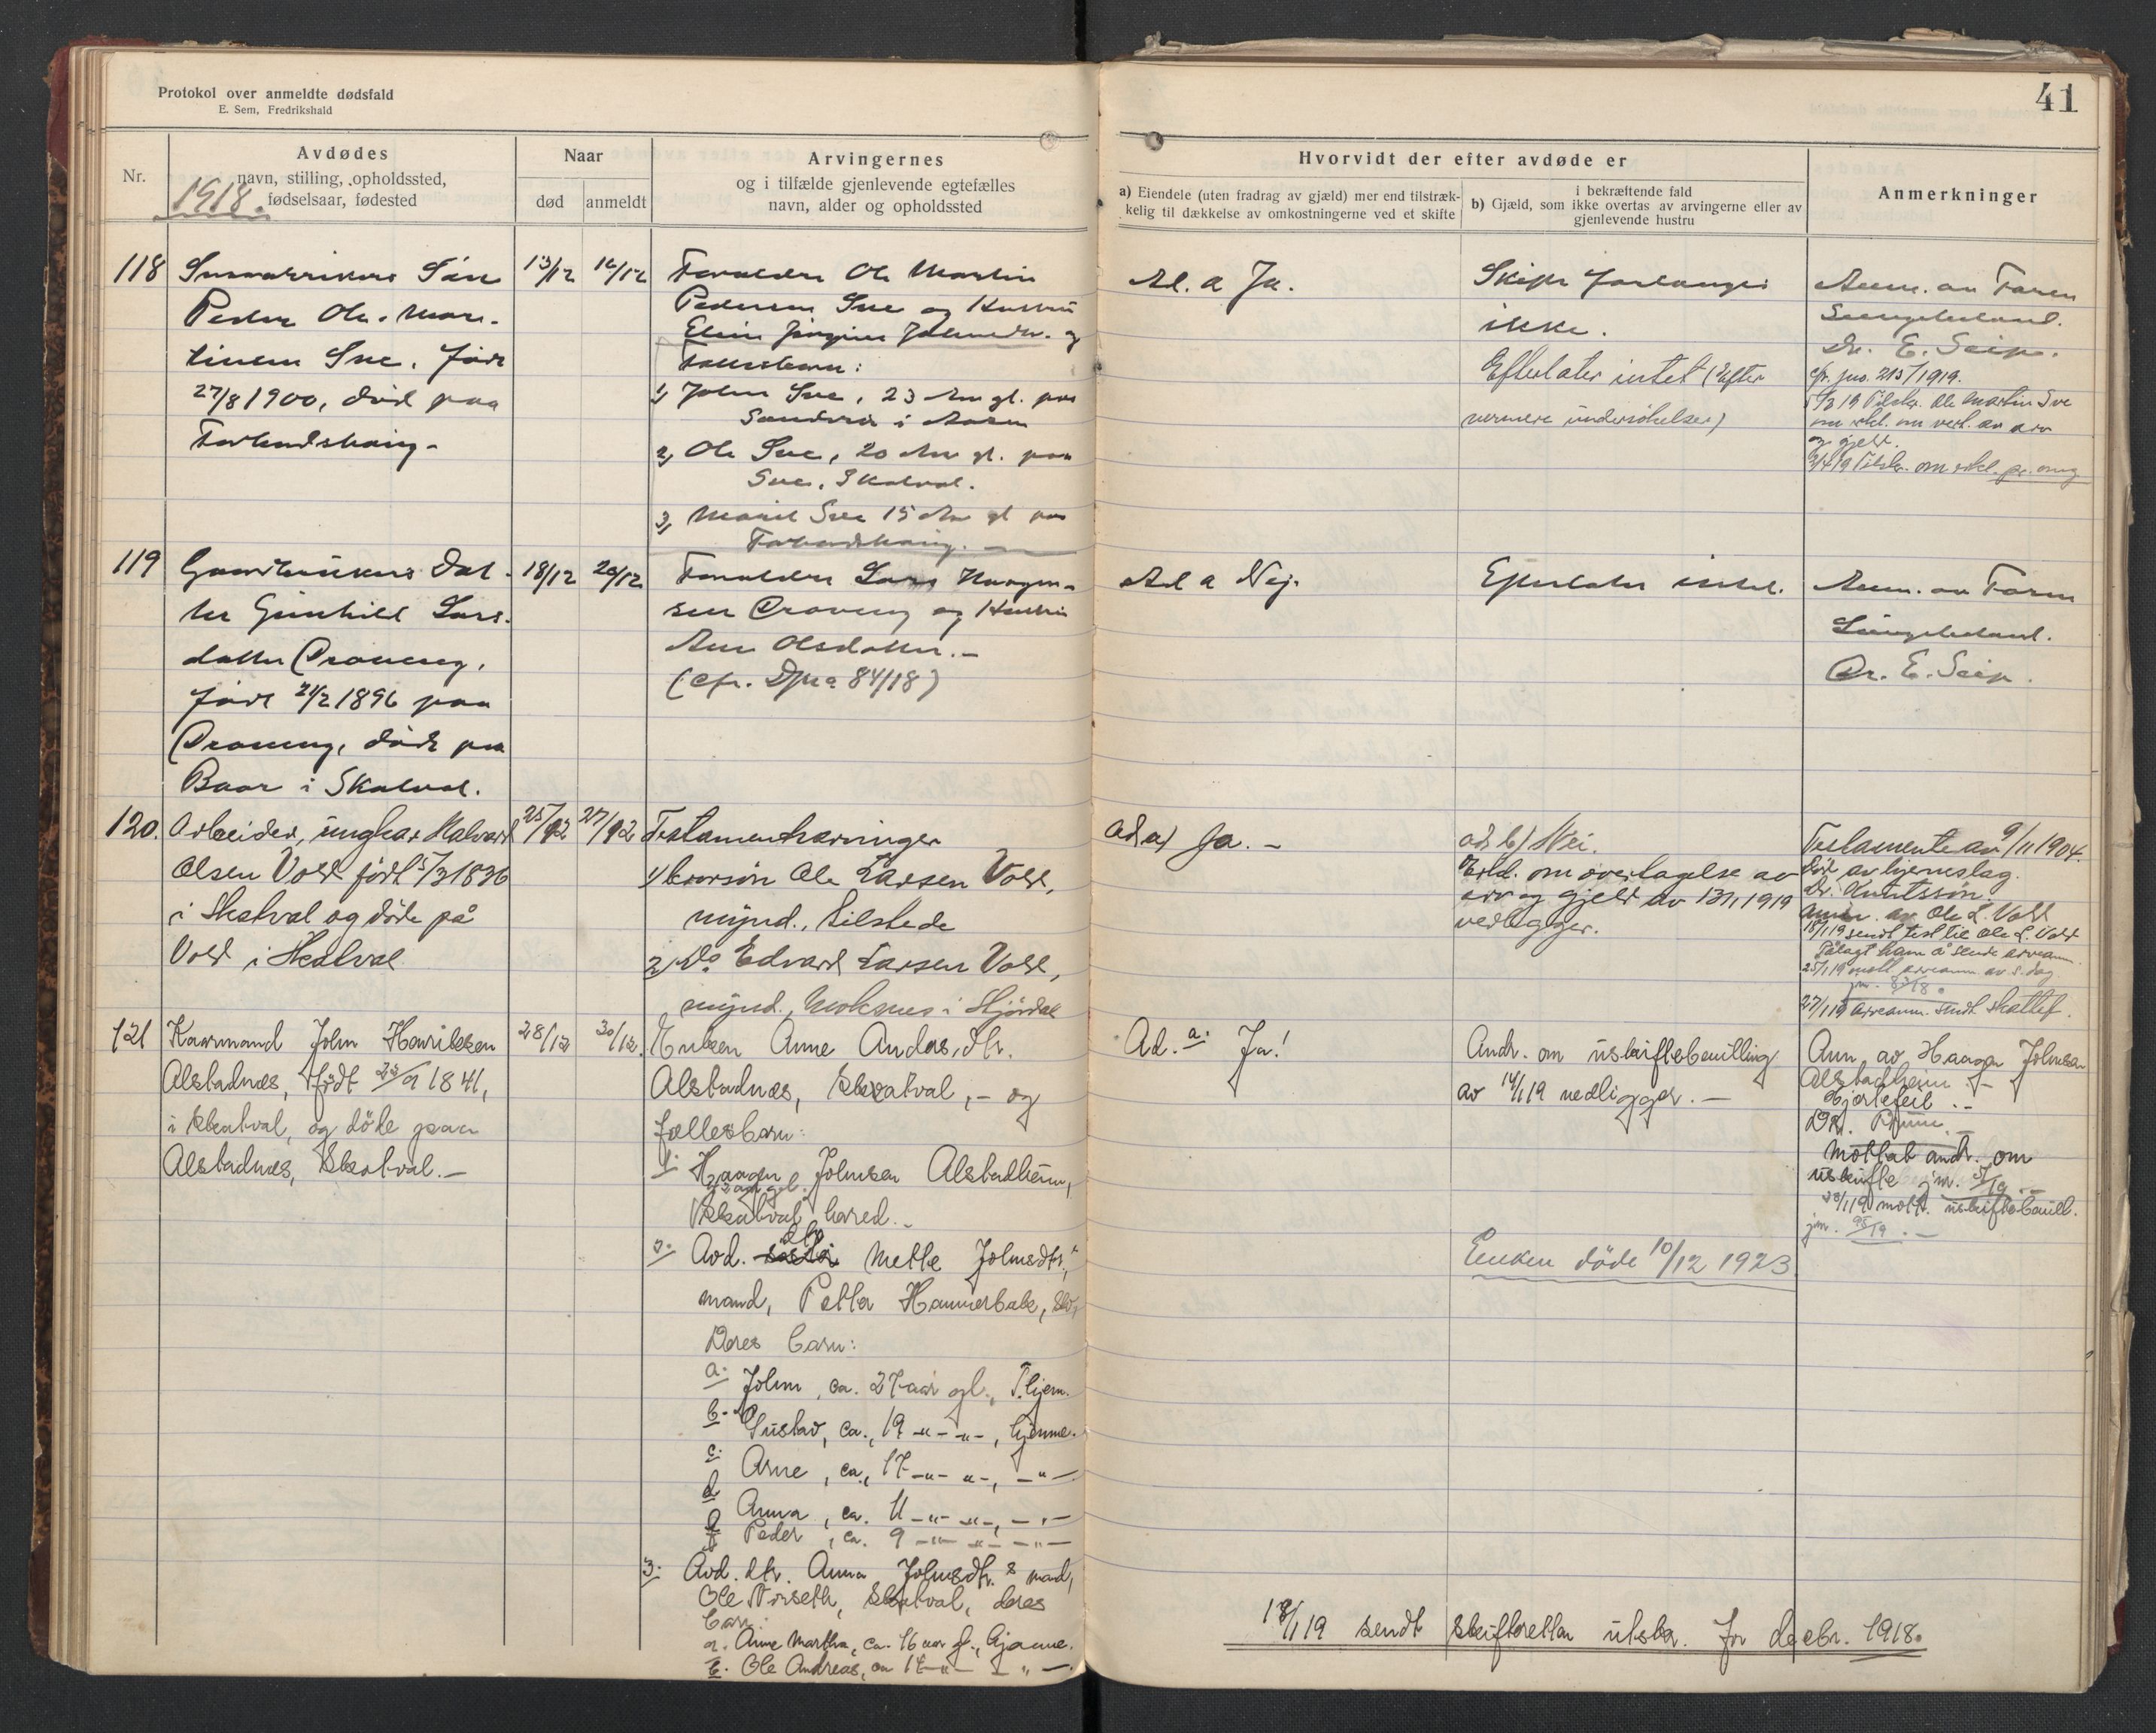 Protokol over anmeldte dødsfald
E. Sem, Fredrikshald
41
Nr.
Avdødes
navn, stilling, opholdssted,
fødselsaar, fødested
1918.
Naar
død
anmeldt
Arvingernes
og i tilfælde gjenlevende egtefælles
navn, alder og opholdssted
Hvorvidt der efter avdøde er
a) Eiendele (uten fradrag av gjæld) mer end tilstræk-
kelig til dækkelse av omkostningerne ved et skifte
i bekræftende fald
b) Gjæld, som ikke overtas av arvingerne eller av
gjenlevende hustru
Anmerkninger
118
Søn
Peder Ole Mar-
tinsen Sve. født
27/8 1900, død paa
Forbordshaug
13/12
Forældre Ole Martin
Pedersen Sve og Hustru
og
1, John Sve, 23 Aar gl. paa
i Aasen
2, Ole Sve, 20 Aar gl. paa
Sve, Skatval.
3, Marit Sve 15 Aar gl paa
Ad. a Ja.
Skifte forlanges
ikke.
Efterlater intet (Efter
nærmere undersøkelser)
Anm. av Faren
Dr. E. Seip.
cfr. jno. 215/1919.
Ole Martin Sve
av arv
og gjeld.
119
Dat-
ter Gunhild Lars-
datter
født 1896 paa
døde paa
Baar i Skatval.
18/12
20/12
Forældre Lars Haagen-
sen og Hustru
Olsdatter.-
84/18)
Ad a Nej.
Efterlater intet.
Anm. av Faren
Dr. E. Seip.
120.
Arbeider, ungkar Halvard
Olsen Vold født 5/3 1836
i Skatval og døde på
Vold i Skatval
25/12
27/12
Testamentsarvinger
1) brorsøn Ole Larsen Vold,
mynd., tilstede
2) Do Edvard Larsen Vold,
mynd., i Stjørdal
ad a) Ja. -
ad b) Nei.
Erkl. om overtagelse av
arv og gjeld av 13/1 1919
vedligger.
Testamente av 9/11 1904.
Død av hjerneslag.
Dr. Knutssøn.
Anm. av Ole L. Vold
18/1 19 sendt test til Ole L. Vold
Pålagt ham å sende arveanm.
25/1 19 mott. arveanm. av s. dag
27/1 19 arveanm. sendt skattef.
121
Kaarmand John Henriksen
Alstadnæs, født 1841,
i Skatval, og döde paa
Alstadnæs, Skatval.-
28/12
30/12.
Enken Anne Andersdtr.
Alstadnæs, Skatval, - og
fællesbarn:
1: Haagen Johnsen Alstadheim,
Skatval herred.
2: Avd. dtr Mette Johnsdtr.,
mand, Petter Hammerbak,
Deres barn:
a: John, ca. 27 aar gl., T.hjem.
b. Gustav, ca. 19 -"- -"-, hjemme.
c: Arne, ca. 17 -"- -"-, -"-
d Anna, ca. 11 -"- -"-, -"-
Peder, ca. 9 -"- -"- -"-
3: Avd. dtr. Anna Johnsdtr.s mand,
Ole Vorseth, Skatval, deres
barn:
a. Anne Martha, ca. 16 aar gl., hjemme.
b. Ole Andreas, ca 12 -"- - " -.
Ad. a: Ja!
Andr. om uskiftebevilling
av 14/1 19 vedligger. -
Enken döde 10/12 1923
Anm av Haagen Johnsen
Alstadheim. -
Hjertefeil. -
Mottat andr. om
uskifte jnr.
28/1 19 mott. uskiftebevill.
jnr. 95/19. -
18/1 19 sendt skifteretten utskr. for decbr. 1918.